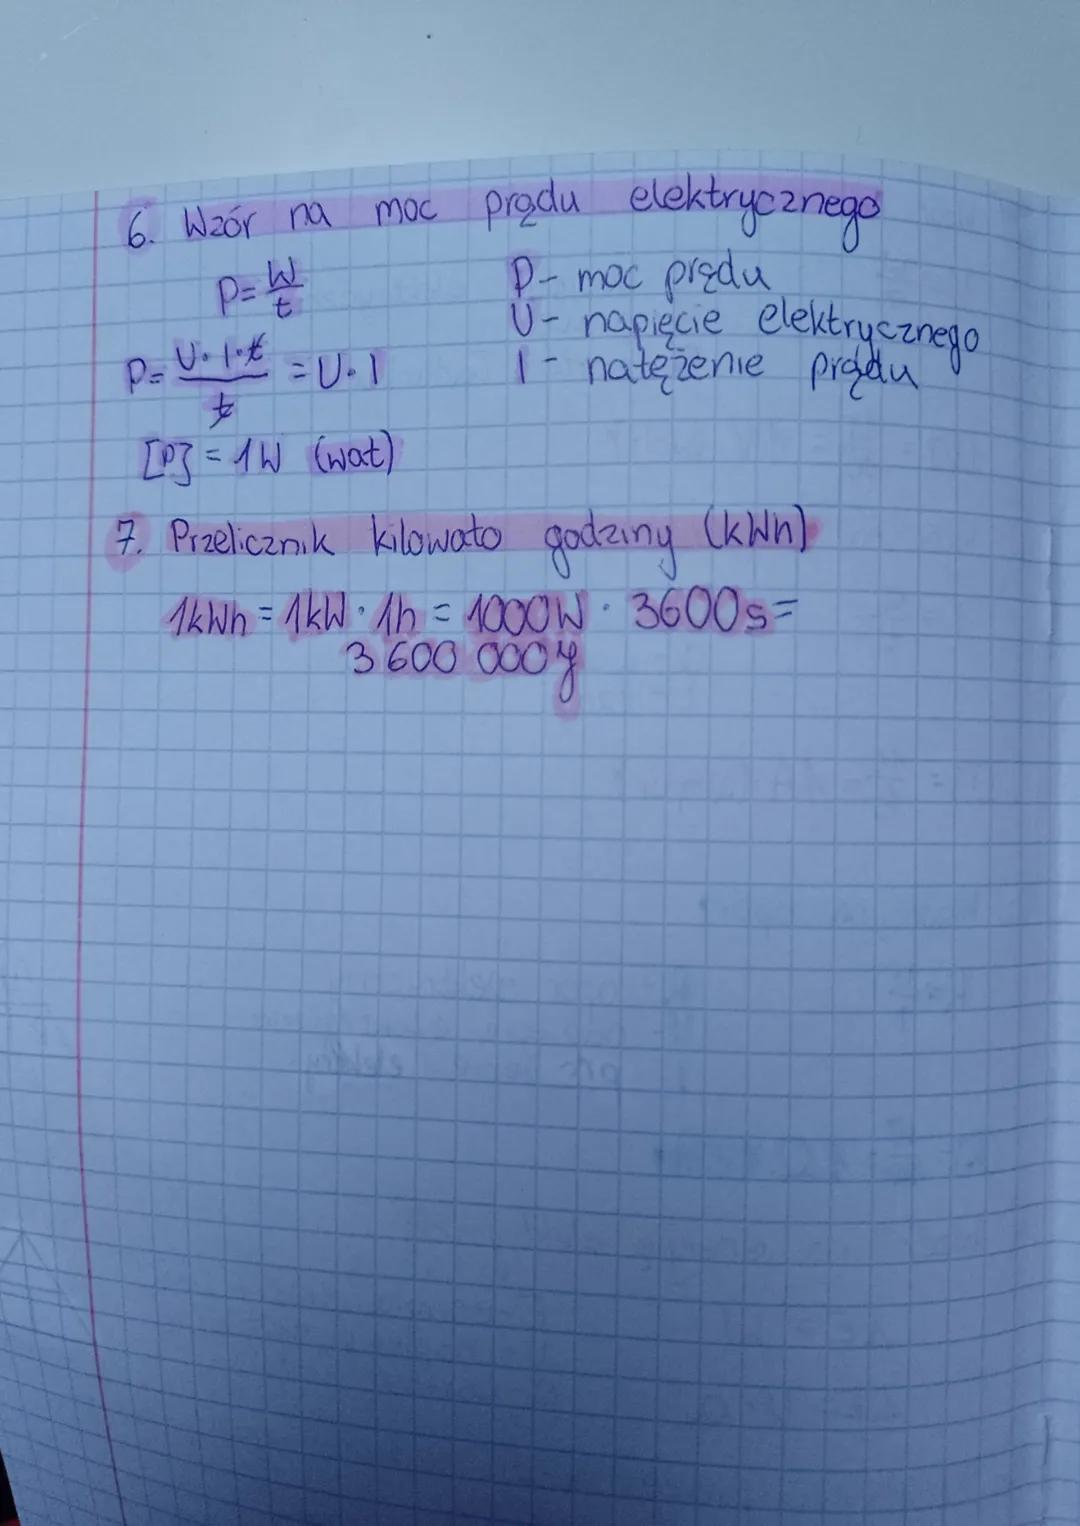 6. Wzór na moc prądu elektrycznego
P=W/t
P- moc prądu
U- napięcie elektrycznego
P=U·I·t/t =U·I
I- natężenie prądu
[P] = 1W (wat)
7. Przelicznik kilowato godziny (kWh)
1kWh = 1kW · 1h = 1000W · 3600s=
3 600 000 J